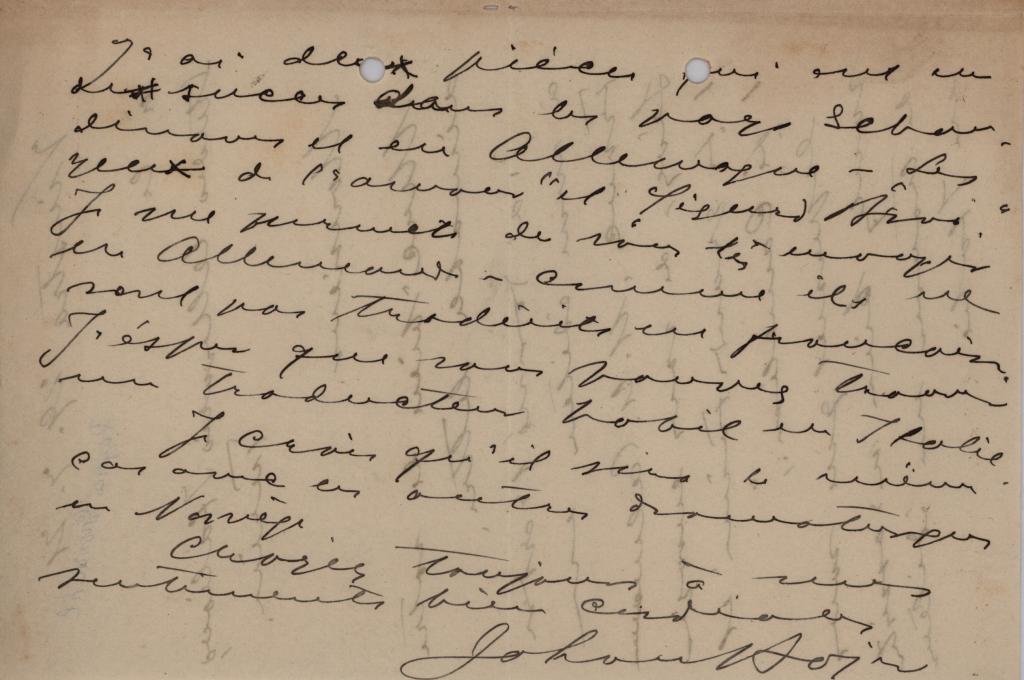 J'ai deux pièces qui ont eu
du succes dans les pays Scban-
dinaves et en Allemagne – Les
yeux de l'amour" et Sigurd Braa"
Je me permets de vous les envoyer
en Allemand – comme ils ne
sont pas traduits en francais.
J'éspere que vous pouvez trouver
un traducteur habil en Italie.
Je crois qu'il sera le même
cas avec les autres dramaturgues
en Norvège
Croyez toujours à mes
sentiments bien cordiales
Johan Bojer